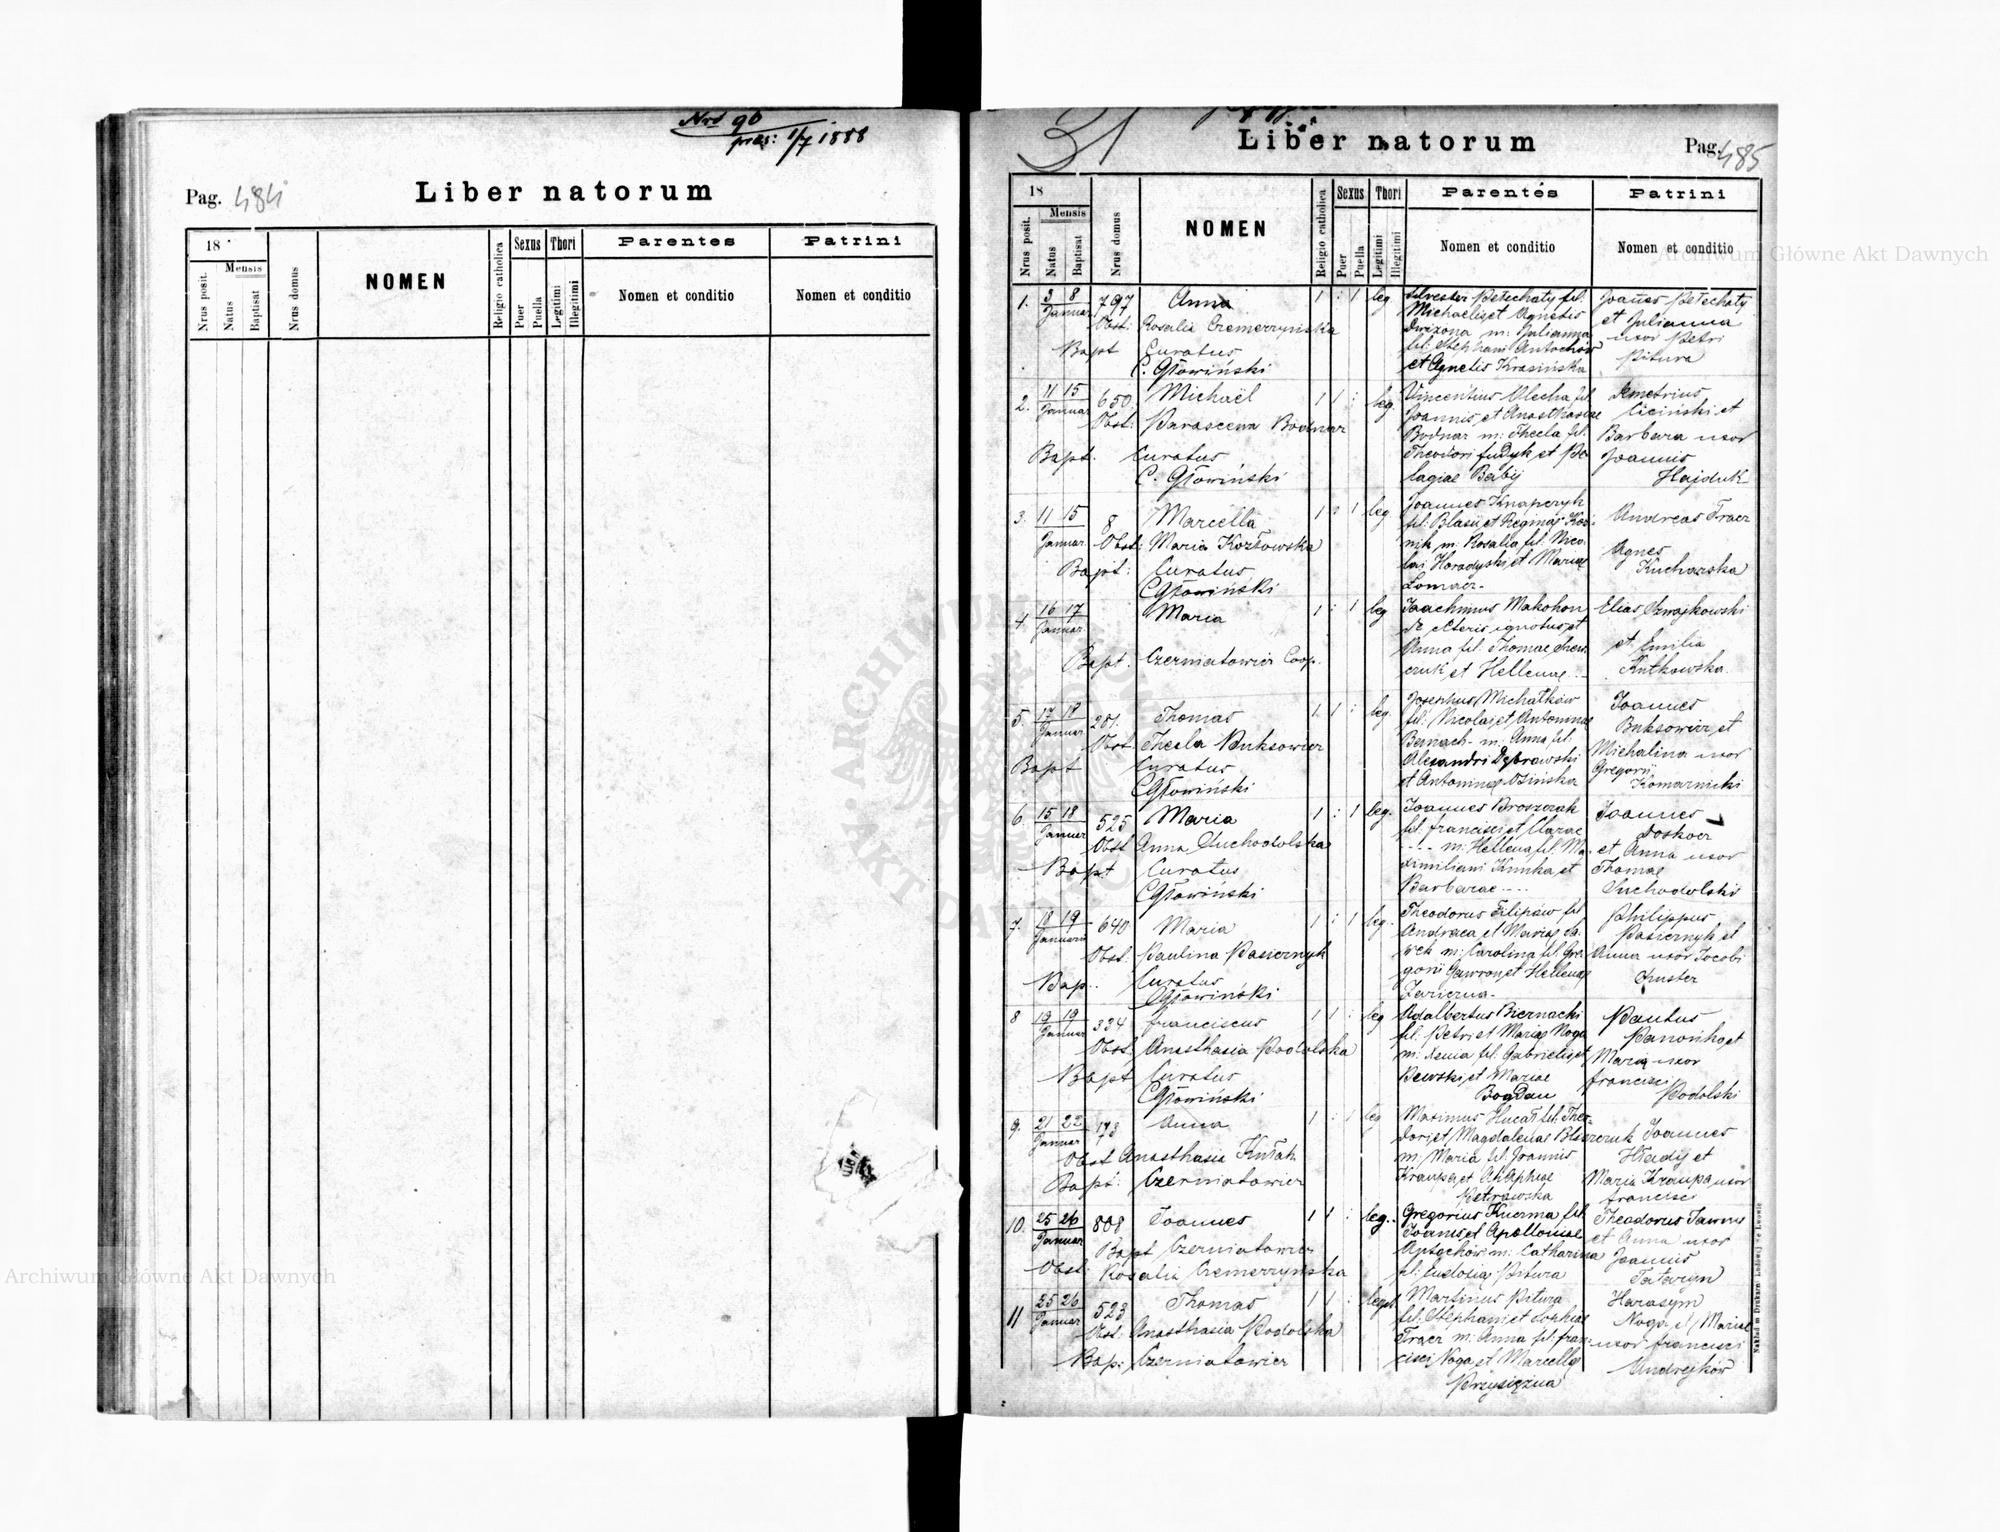 Nrs 96
präs: 1/7 1888
Pag. 484
Liber natorum
18
Mensis
Nrus posit.
Natus
Baptisat
Nrus domus
NOMEN
Religio catholica
Sexus
Puer
Puella
Thori
Legitimi
Illegitimi
Parentes
Nomen et conditio
Patrini
Nomen et conditio
31
Liber natorum
Pag. 485
18
Mensis
Nrus posit.
Natus
Baptisat
Nrus domus
NOMEN
Religio catholica
Sexus
Puer
Puella
Thori
Legitimi
Illegitimi
Parentes
Nomen et conditio
Patrini
Nomen et conditio
1. 3 8 Januar 797 Anna 1 : 1 leg
Obst: Rosalia Czemerzyńska
Bapt Curatus
C. Głowiński
Silvester Petechaty fil:
Michaelis et Agnetis
m: Julianna
fil: Stephani Antochów
et Agnetis Krasińska
Joannes Petechaty
et Julianna
uxor Petri
Pitura
2. 11 15 Januar 650 Michaël 1 1 : leg.
Obst: Parascewa Bodnar
Bapt. Curatus
C. Głowiński
Vincentius Olecha fil.
Joannis et Anasthasiae
Bodnar m: Thecla fil.
Theodori Judyk et Pe
lagiae Babij
Demetrius
Ciciński et
Barbara uxor
Joannis
Hajduk
3. 11 15 Januar. 8 Marcella 1 : 1 leg
Obst: Maria Kozłowska
Bapt: Curatus
C Głowiński
Joannes Knapczyk
fil: Blasii et Reginae
m: Rosalia fil: Nico
lai Horadyski et Mariae
Andreas Tracz
Agnes
Kucharska
4. 16 17 Januar. Maria 1 : 1 leg
Bapt. Czerniatowicz Coop.
Joachimus Makohon
ignotus, et
Anna fil. Thomae
et Hellenae
Elias
et Emilia
Kutkowska
5. 17 18 Januar 201. Thomas 1 1 : leg.
Obst Thecla Buksowicz
Bapt Curatus
C Głowiński
Josephus Michałków
fil: Nicolai et Antoninae
m: Anna fil:
Alexandri Dąbrowski
et Antoninae
Joannes
Buksowicz et
Michalina uxor
Gregorii
Komarnicki
6. 15 18 Januar 525 Maria 1 : 1 leg.
Obst Anna Suchodolska
Bapt Curatus
C Głowiński
Joannes Broszczak
fil. Francisci et Clarae
---- m: Hellena fil. Ma
ximiliani Kunka et
Barbarae ----
Joannes
Doskocz
et Anna uxor
Thomae
Suchodolski
7. 18 19 Januarii 640 Maria 1 : 1 leg.
Obst. Paulina Pasiernyk
Bap.. Curatus
C Głowiński
Theodorus Filipów fil
Andraea et Mariae
m: Carolina fil. Gre
gorii Gawron et Hellenae
Philippus
Pasiernyk et
Anna uxor Jacobi
Szuster
8 19 19 Januar 334 Franciscus 1 1 : leg
Obst. Anasthasia Podolska
Bapt Curatus
C Głowiński
Adalbertus Biernacki
fil. Petri et Mariae Noga
m: Xenia fil: Gabrielis
et Mariae
Bogdan
Paulus
et
Maria uxor
Francisci
Podolski
9. 21 22 Januar 173 Anna 1 : 1 leg
Obst Anasthasia Kułak
Bapt: Czerniatowicz
Maximus Hucał fil. Theo-
dori et Magdalenae Blaszczuk
m: Maria fil. Joannis
Kraupa et
Petrowska
Joannes
Hładij et
Maria Kraupa uxor
Francisci
10. 25 26 Januar 808 Joannes 1 1 : leg..
Bapt Czerniatowicz
Obst: Rosalia Czemerzyńska
Gregorius Kuzma fil.
Joannis et Apolloniae
Antochów m: Catharina
fil: Eudoxiae Pitura
Theodorus
et Anna uxor
Joannis
Tataryn
11 25 26 Januar 523 Thomas 1 1 : legit
Obst: Anasthasia Podolska
Bap: Czerniatowicz
Martinus Pitura
fil. Stephani et Sophiae
Tracz m: Anna fil: Fran-
cisci Noga et Marcella
Przysiężna
Harasym
Noga et Maria
uxor Francisci
Andrejków
Nakład m Drukarni Ludowej we Lwowie
Archiwum Główne Akt Dawnych
Archiwum Główne Akt Dawnych